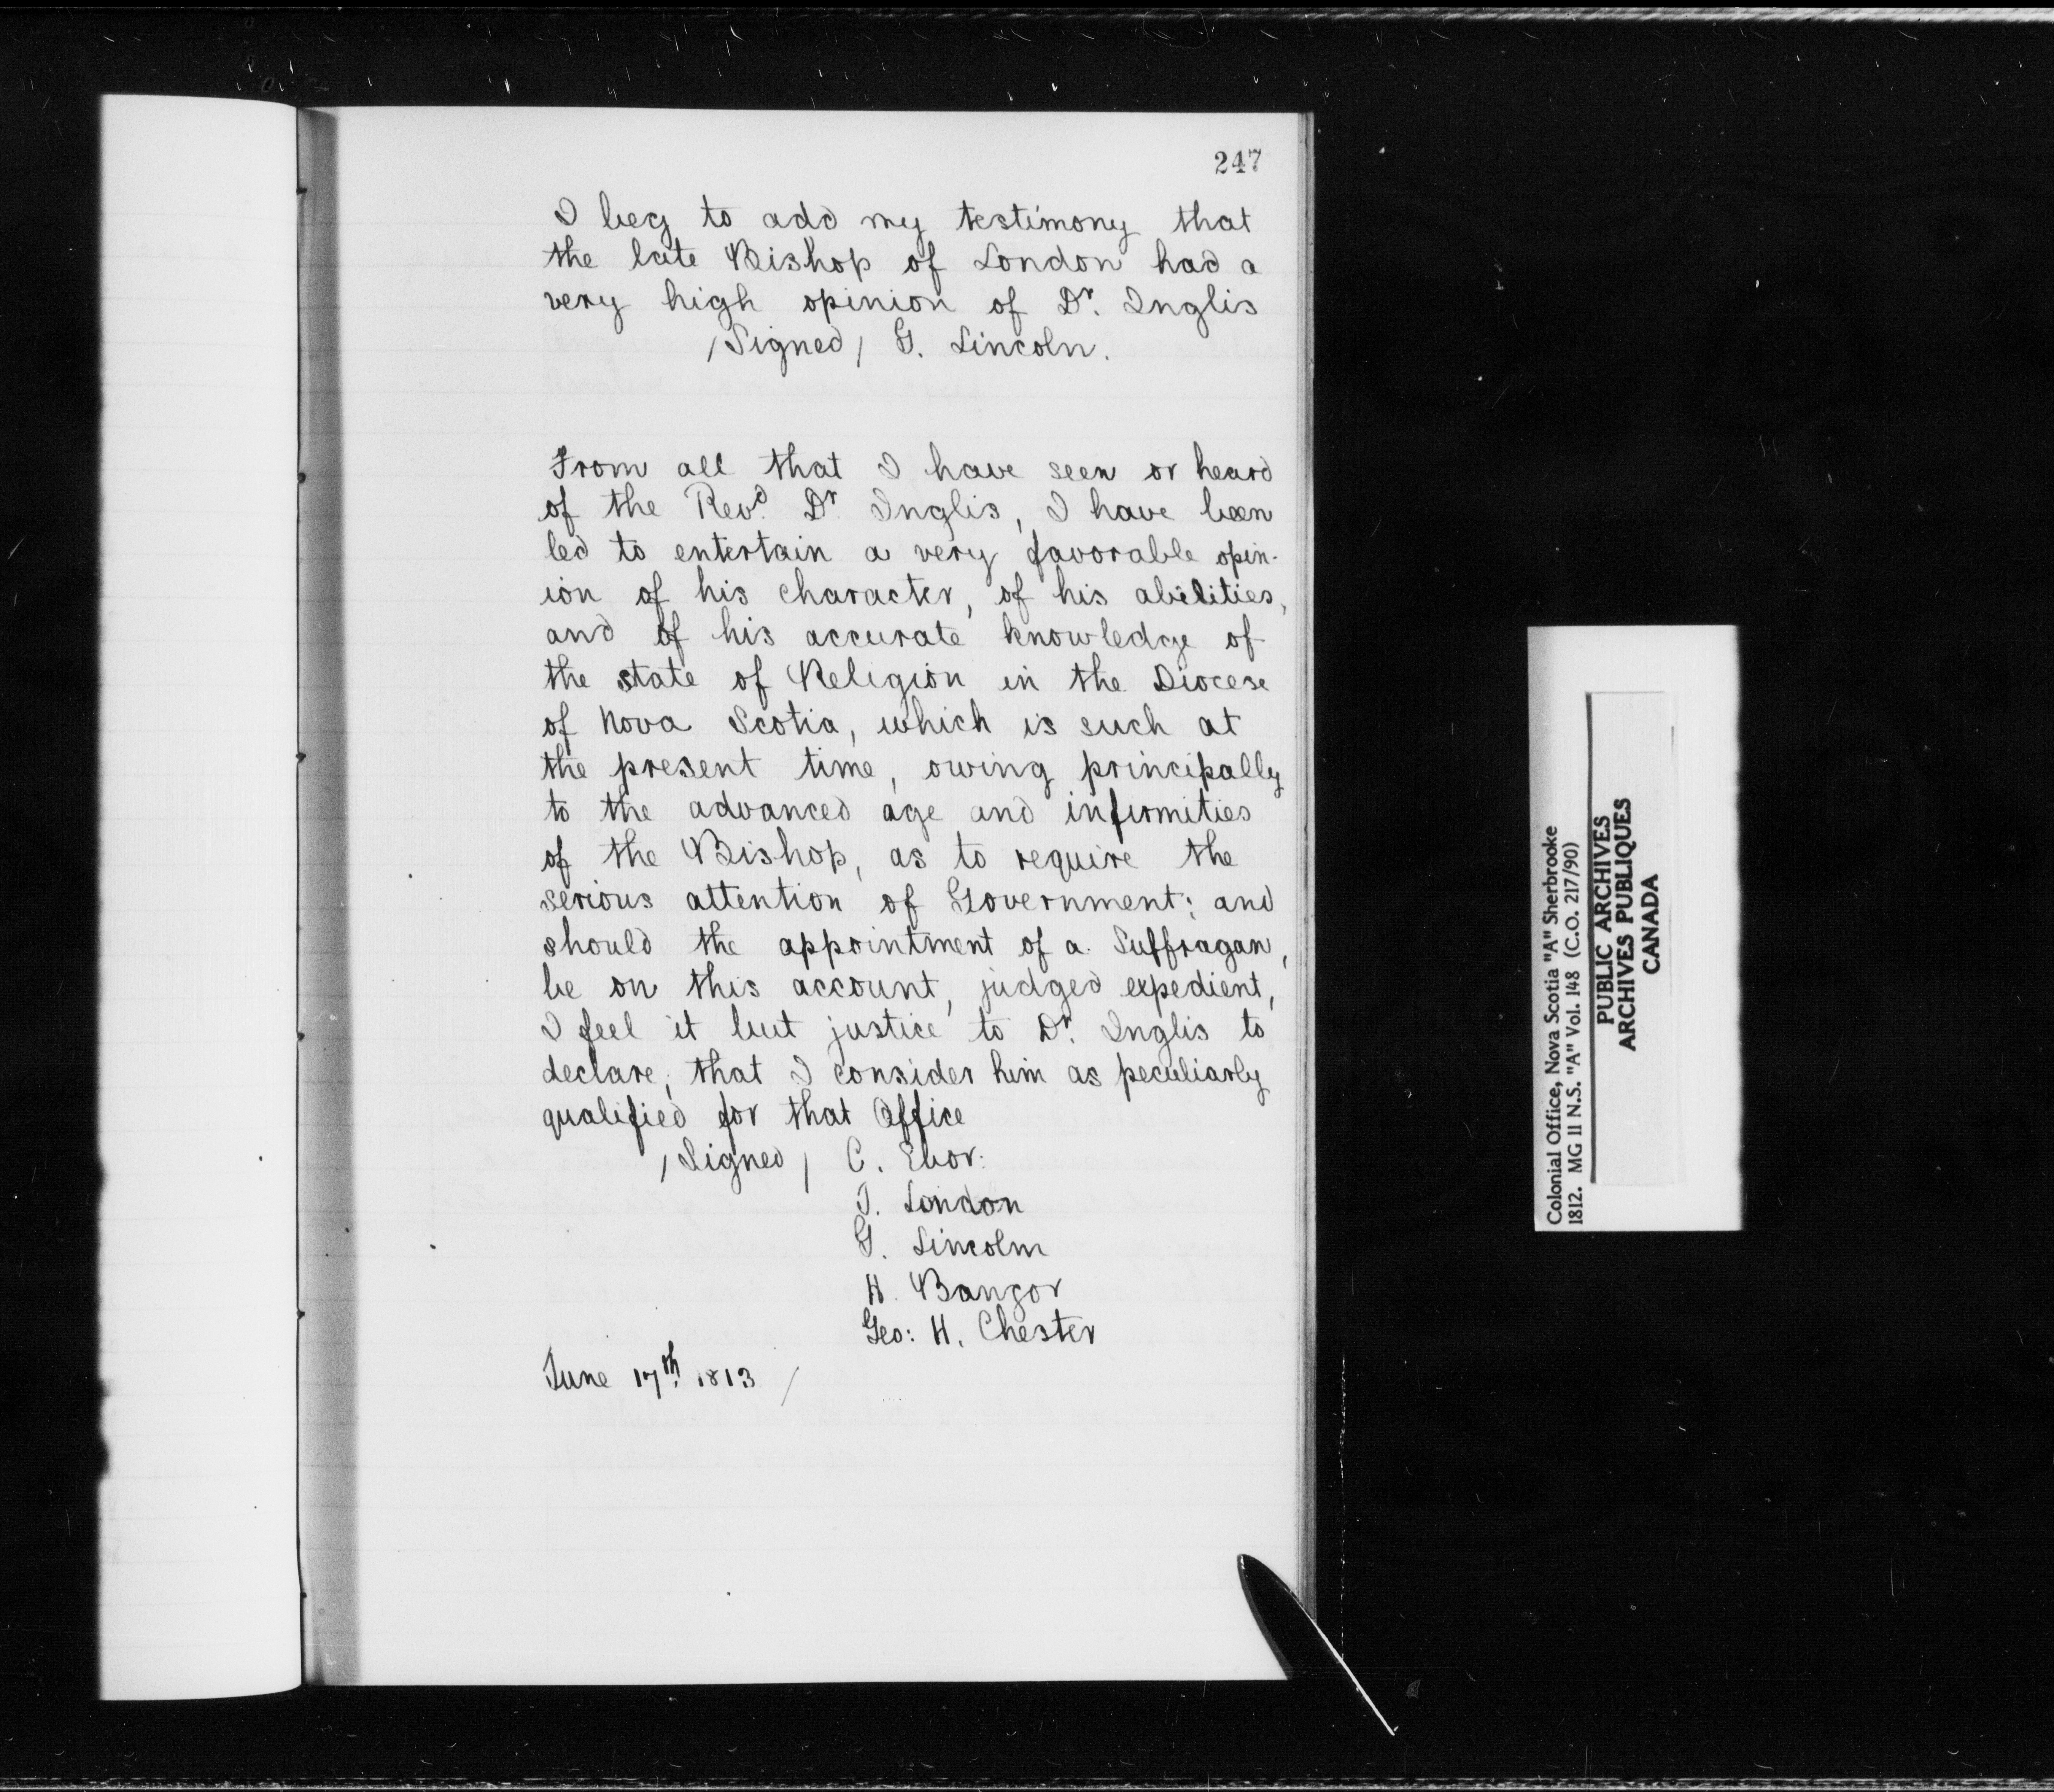 247
I beg to add my testimony that
the late Bishop of London had a
very high opinion of Dr. Inglis
/Signed/ G. Lincoln.
From all that I have seen or heard
of the Revd. Dr. Inglis, I have been
led to entertain a very favorable opin-
ion of his character, of his abilities,
and of his accurate knowledge of
the state of Religion in the Diocese
of Nova Scotia, which is such at
the present time, owing principally
to the advanced age and infirmities
of the Bishop, as to require the
serious attention of Government; and
should the appointment of a Suffragan,
be on this account, judged expedient,
I feel it but justice to Dr. Inglis to
declare, that I consider him as peculiarly
qualified for that Office
/Signed/ C. Ebor:
J. London
G. Lincoln
H. Bangor
Geo: H. Chester
June 17th. 1813 /
Colonial Office, Nova Scotia "A" Sherbrooke
1812. MG 11 N.S. "A" Vol. 148 (C.O. 217/90)
PUBLIC ARCHIVES
ARCHIVES PUBLIQUES
CANADA